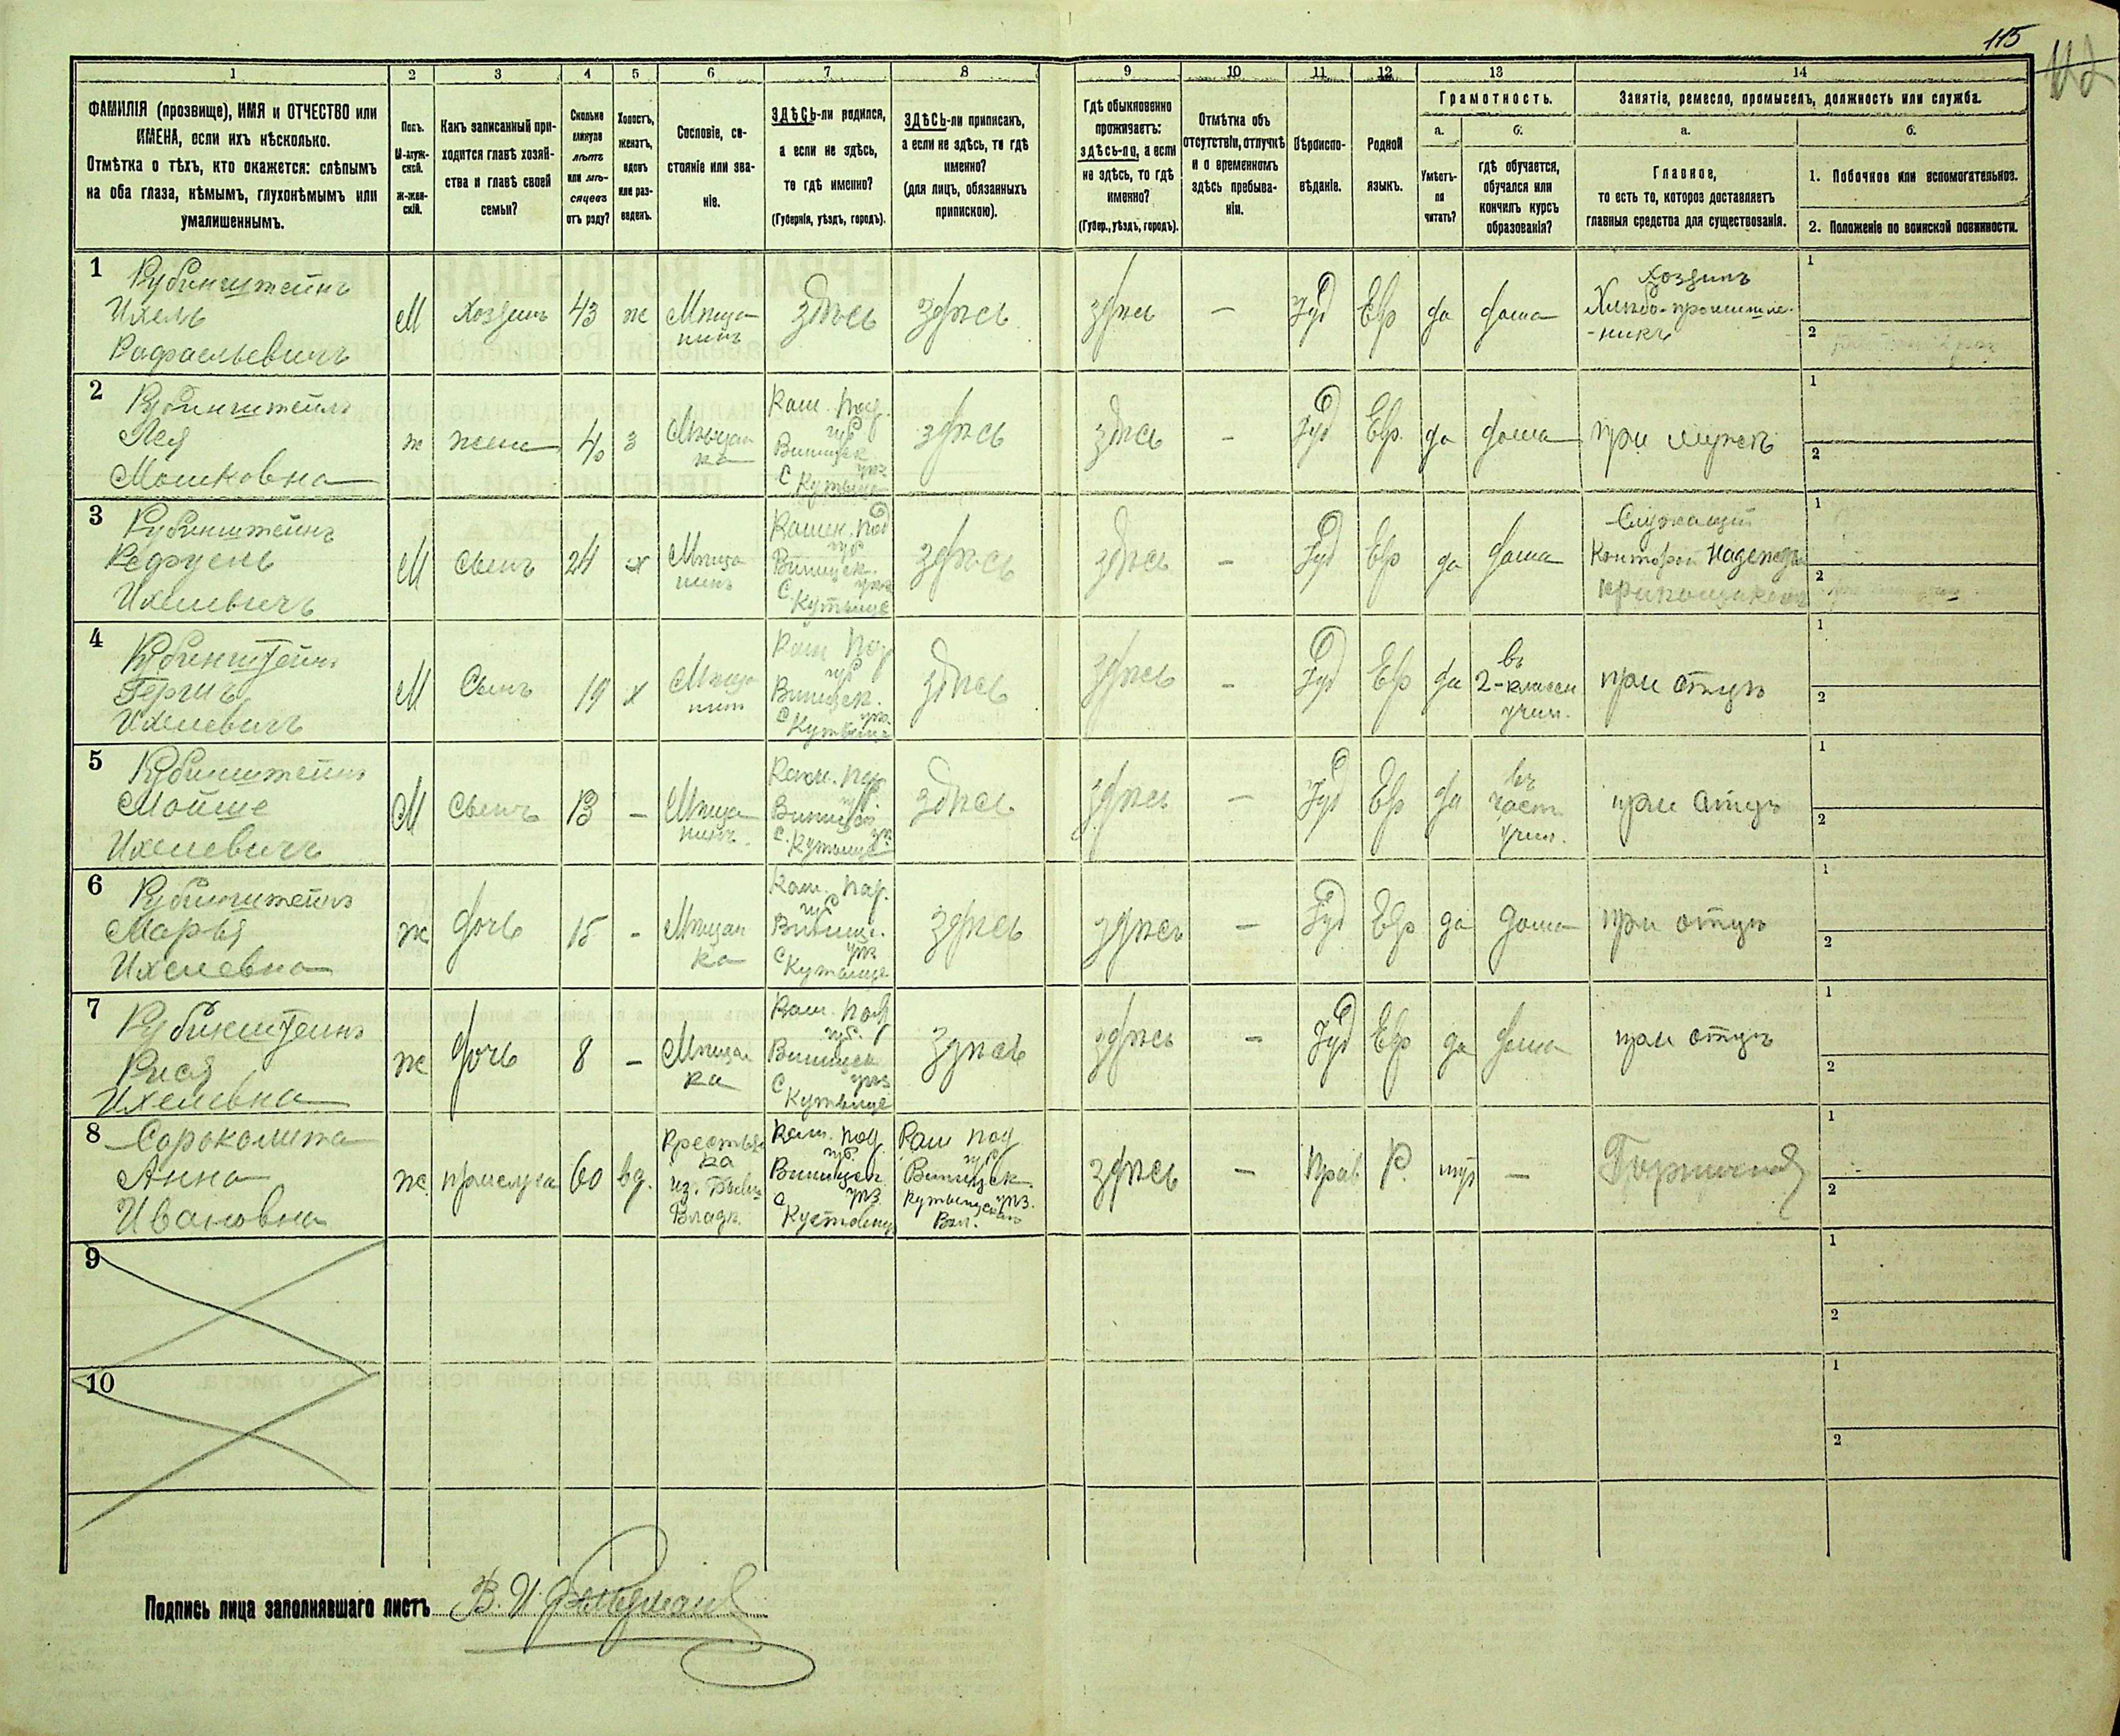 115
112
1 2 3 4 5 6 7 8 9 10 11 12 13 14
ФАМИЛІЯ (прозвище), ИМЯ и ОТЧЕСТВО или
ИМЕНА, если ихъ нѣсколько.
Отмѣтка о тѣхъ, кто окажется: слѣпымъ
на оба глаза, нѣмымъ, глухонѣмымъ или
умалишеннымъ.
Полъ.
М-муж-
ской.
Ж-жен-
скій.
Какъ записанный при-
ходится главѣ хозяй-
ства и главѣ своей
семьи?
Сколько
минуло
лѣтъ
или мѣ-
сяцевъ
отъ роду?
Холостъ,
женатъ,
вдовъ
или раз-
веденъ.
Сословіе, со-
стояніе или зва-
ніе.
ЗДѢСЬ-ли родился,
а если не здѣсь,
то гдѣ именно?
(Губернія, уѣздъ, городъ).
ЗДѢСЬ-ли приписанъ,
а если не здѣсь, то гдѣ
именно?
(для лицъ, обязанныхъ
припискою).
Гдѣ обыкновенно
проживаетъ:
здѣсь-ли, а если
не здѣсь, то гдѣ
именно?
(Губер., уѣздъ, городъ).
Отмѣтка объ
отсутствіи, отлучкѣ
и о временномъ
здѣсь пребыва-
ніи.
Вѣроиспо-
вѣданіе.
Родной
языкъ.
Грамотность.
а.
Умѣетъ-
ли
читать?
б.
гдѣ обучается,
обучался или
кончилъ курсъ
образованія?
Занятіе, ремесло, промыселъ, должность или служба.
а.
Главное,
то есть то, которое доставляетъ
главныя средства для существованія.
б.
1. Побочное или вспомогательное.
2. Положеніе по воинской повинности.
1
Рубинштейнъ
Ихель
Рафаельевичъ
М Хозяинъ 43 ж Мѣща
нинъ
здѣсь здѣсь здѣсь — Іуд Евр да дома
Хозяинъ
Хлѣбо-промышле-
-никъ
1
2
2
Рубинштейнъ
Лея
Мошковна
ж жена 40 з Мѣщан
ка
Кам. Под.
губ
Винницк
уѣз
с Кутыще
здѣсь здѣсь — Іуд Евр. да дома при мужѣ
1
2
3
Рубинштейнъ
Рафуель
Ихелевичъ
М Сынъ 24 х Мѣща
нинъ
Камен. Под
губ
Винницк.
уѣз
с. Кутыще
здѣсь здѣсь — Іуд Евр да дома
Служащій
1
2
4
Рубинштейнъ
Гершъ
Ихелевичъ
М Сынъ 19 х Мѣща
нинъ
Кам Под
губ
Винницк.
уѣз.
с Кутыще
здѣсь здѣсь — Іуд Евр да
въ
2-классн
учил.
при отцѣ
1
2
5
Рубинштейнъ
Мойше
Ихелевичъ
М Сынъ 13 — Мѣща
нинъ.
Кам. Под
губ.
Винницк
уѣз
с. Кутыще
здѣсь здѣсь — Іуд Евр да
въ
част
учил.
при отцѣ
1
2
6
Рубинштейнъ
Марья
Ихелевна
ж дочь 15 - Мѣщан
ка
Кам. Под.
губ
Винниц.
уѣз
с Кутыще
здѣсь здѣсь — Іуд Евр да дома при отцѣ
1
2
7
Рубинштейнъ
Рися
Ихелевна
ж дочь 8 — Мѣщан
ка
Кам. Под
губ.
Винницк
уѣз
с Кутыще
здѣсь здѣсь — Іуд Евр да дома при отцѣ
1
2
8
Сороколита
Анна
Ивановна
ж. прислуга 60 вд.
Крестьян
ка
из. бывш
Владѣ.
Кам. Под
губ.
Винницк.
уѣз
с Кустовцы
Кам Под
губ
Винницк.
уѣз.
Кутыщской
Вол.
здѣсь — Прав Р. нѣт — Горничная
1
2
9
1
2
10
1
2
Подпись лица заполнявшаго листъ